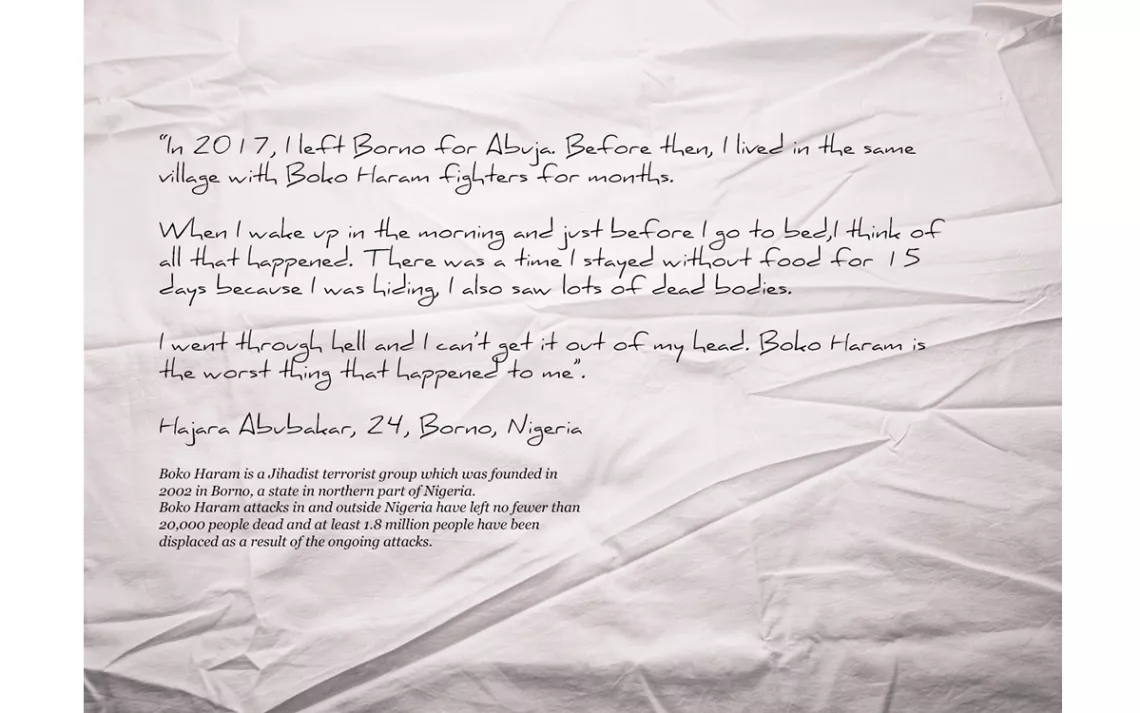 “In 2017, I left Borno for Abuja. Before then, I lived in the same
village with Boko Haram fighters for months.
When I wake up in the morning and just before I go to bed,I think of
all that happened. There was a time I stayed without food for 15
days because I was hiding, I also saw lots of dead bodies.
I went through hell and I can't get it out of my head. Boko Haram is
the worst thing that happened to me”.
Hajara Abubakar, 24, Borno, Nigeria
Boko Haram is a Jihadist terrorist group which was founded in
2002 in Borno, a state in northern part of Nigeria.
Boko Haram attacks in and outside Nigeria have left no fewer than
20,000 people dead and at least 1.8 million people have been
displaced as a result of the ongoing attacks.